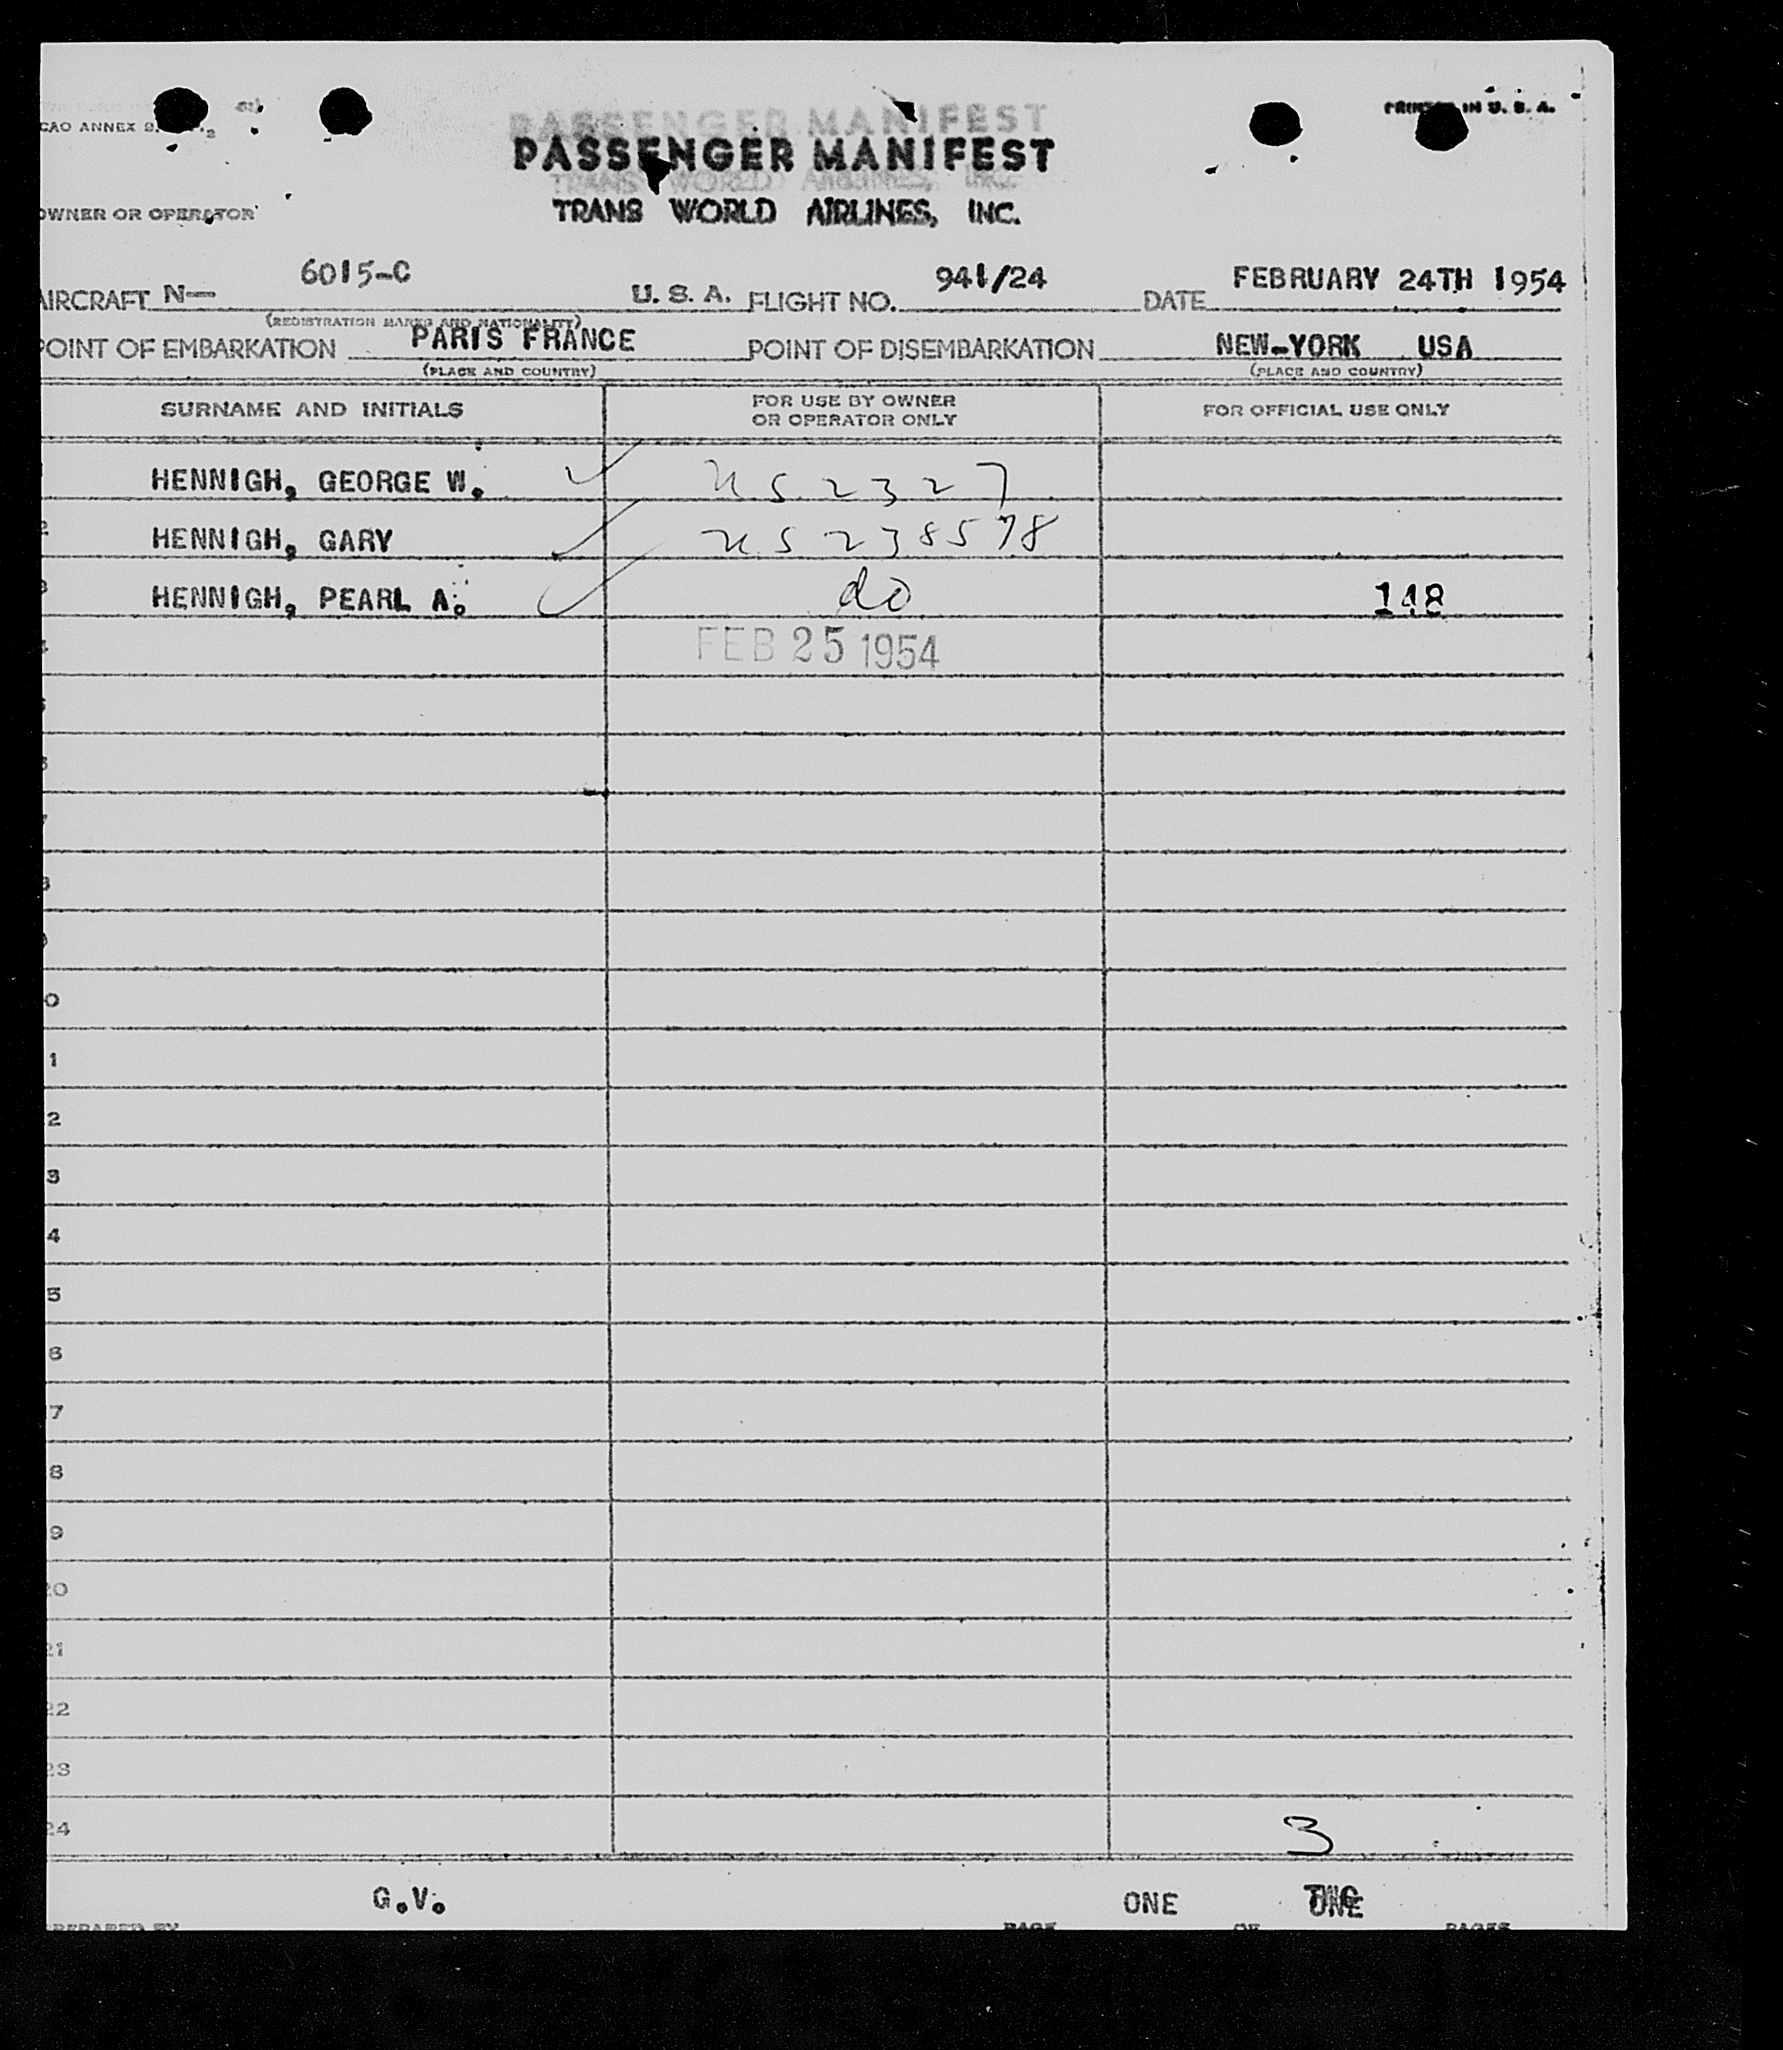 CAO ANNEX 9.
PRINTED IN U. S. A.
PASSENGER MANIFEST
OWNER OR OPERATOR
TRANS WORLD AIRLINES, INC.
AIRCRAFT N— 6015-C U. S. A. FLIGHT NO. 941/24 DATE FEBRUARY 24TH 1954
(REGISTRATION MARKS AND NATIONALITY)
POINT OF EMBARKATION PARIS FRANCE POINT OF DISEMBARKATION NEW-YORK USA
(PLACE AND COUNTRY) (PLACE AND COUNTRY)
SURNAME AND INITIALS FOR USE BY OWNER OR OPERATOR ONLY FOR OFFICIAL USE ONLY
HENNIGH, GEORGE W. US 2327
2 HENNIGH, GARY US 238578
3 HENNIGH, PEARL A. do 148
4 FEB 25 1954
0
1
2
3
4
5
6
7
8
9
20
21
22
23
24 3
G.V. ONE ONE
PREPARED BY PAGE OF PAGES